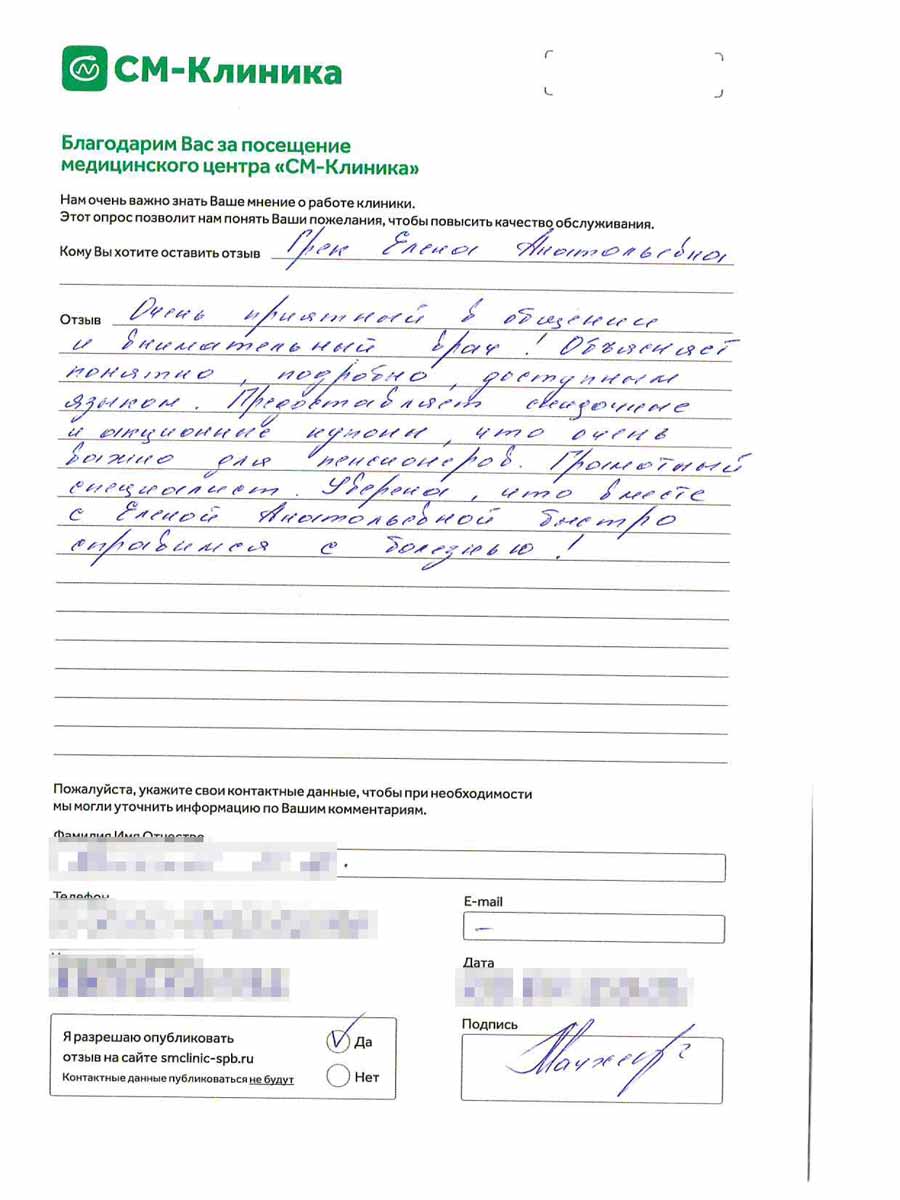 СМ-Клиника
Благодарим Вас за посещение
медицинского центра «СМ-Клиника»
Нам очень важно знать Ваше мнение о работе клиники.
Этот опрос позволит нам понять Ваши пожелания, чтобы повысить качество обслуживания.
Кому Вы хотите оставить отзыв Грек Елена Анатольевна
Отзыв Очень приятный в общении
и внимательный врач! Объясняет
понятно, подробно, доступным
языком. Предоставляет скидочные
и акционные купоны, что очень
важно для пенсионеров. Грамотный
специалист. Уверена, что вместе
с Еленой Анатольевной быстро
справимся с болезнью!
Пожалуйста, укажите свои контактные данные, чтобы при необходимости
мы могли уточнить информацию по Вашим комментариям.
Фамилия Имя Отчество
Телефон
E-mail
–
Дата
Я разрешаю опубликовать
отзыв на сайте smclinic-spb.ru
Контактные данные публиковаться не будут
Да
Нет
Подпись